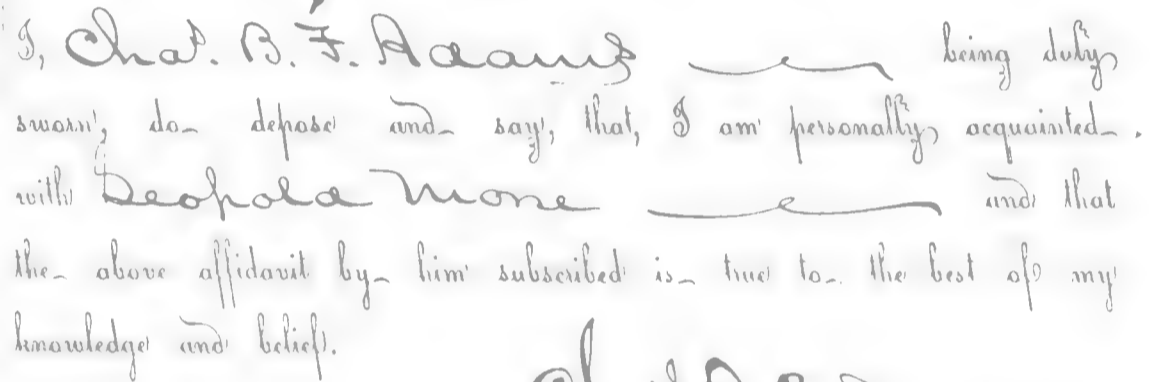 I, Chas. B. F. Adams being duly
sworn, do depose and say, that, I am personally acquainted
with Leopold Mone and that
the above affidavit by him subscribed is true to the best of my
knowledge and belief.